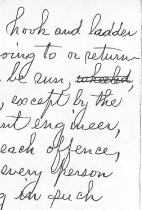 hook and ladder
oing to or return
be run, wheeled,
, except by the
nt engineer,
each offence,
every person
g in such